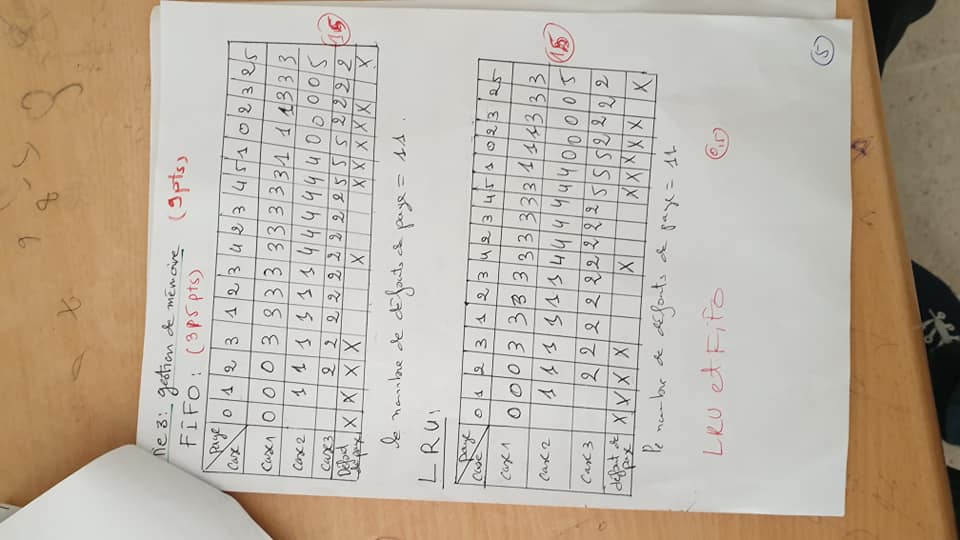 tie 3: gestion de mémoire (9pts)
FIFO: (3,5 pts)
page
Case 0 1 2 3 1 2 3 4 2 3 4 5 1 0 2 3 2 5
Case 1 0 0 0 3 3 3 3 3 3 3 3 3 1 1 1 3 3 3
Case 2 1 1 1 1 1 1 4 4 4 4 4 4 0 0 0 0 5
Case 3 2 2 2 2 2 2 2 2 2 5 5 5 2 2 2 2
1,5
Défaut de page X X X X X X X X X X X
le nombre de défauts de page = 11.
LRU:
page
Case 0 1 2 3 1 2 3 4 2 3 4 5 1 0 2 3 2 5
Case 1 0 0 0 3 3 3 3 3 3 3 3 3 1 1 1 3 3 3
Case 2 1 1 1 1 1 1 4 4 4 4 4 4 0 0 0 0 5
1,5
Case 3 2 2 2 2 2 2 2 2 2 5 5 5 2 2 2 2
défaut de page X X X X X X X X X X X
le nombre de défauts de page = 11
LRU et FiFo 0,5
5